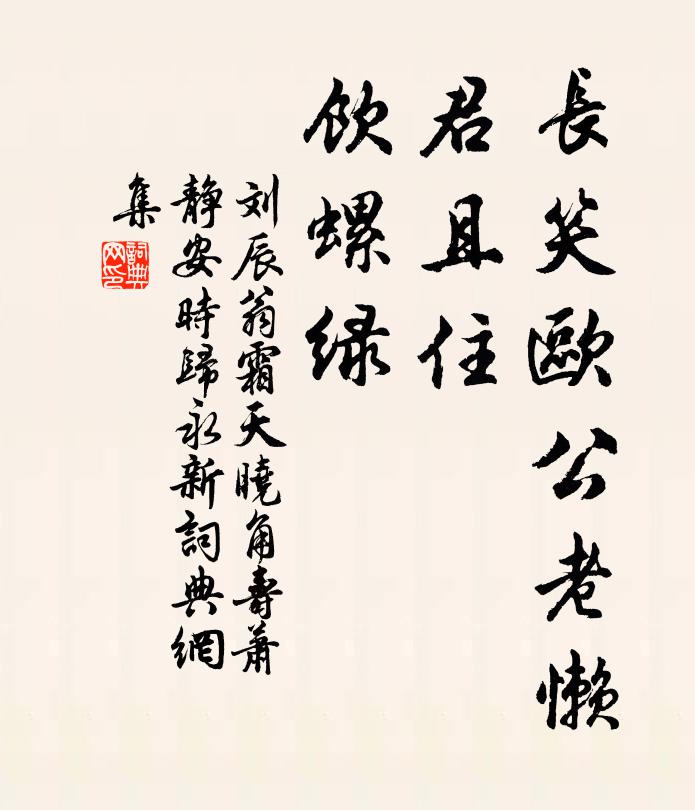 長笑歐公老懶
君且住
飲螺緑
刘辰翁霜天曉角壽蕭
靜安時歸永新詞典網
集
詞典網印